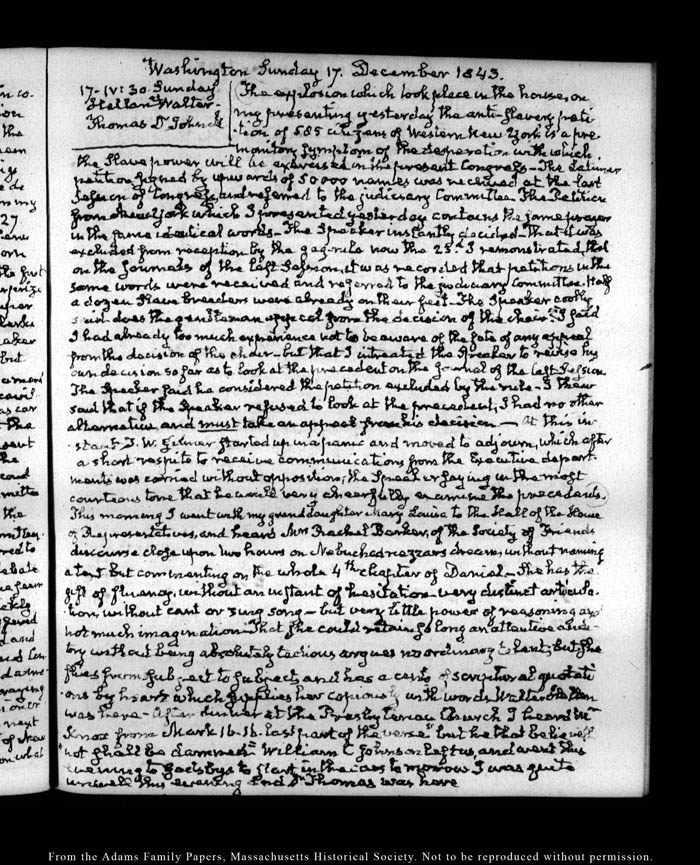 Washington Sunday 17. December 1843.
17. IV:30. Sunday
Stellan Walter
Thomas Dr
The explosion which took place in the house, on
my presenting yesterday the anti-slavery peti-
tion of 585 citizens of Western New York is a pre-
monitory symptom of the desperation with which
the slave power will be exercised in the present Congress- The Latimer
petition signed by upwards of 50000 names was received at the last
Session of Congress, and referred to the judiciary Committee. The Petition
from New York which I presented yesterday contains the same prayer
in the same identical words- The Speaker instantly decided that it was
excluded from reception by the gag-rule now the 23d I remonstrated, that
on the journals of the last Session, it was recorded that petitions in the
same words were received and referred to the judiciary Committee. Half
a dozen slave breeders were already on their feet. The Speaker coolly
said does the gentleman appeal from the decision of the chair? I said
I had already too much experience not to be aware of the fate of any appeal
from the decision of the chair- but that I intreated the Speaker to revise his
own decision so far as to look at the precedent on the journal of the last Session
The Speaker said he considered the petition excluded by the rule- I then
said that if the Speaker refused to look at the precedent, I had no other
alternative and must take an appeal from his decision- At this in-
stant T. W. Gilmer started up in a panic and moved to adjourn, which after
a short respite to receive communications from the Executive depart-
ments was carried without opposition; the Speaker saying in the most
courteous tone that he would very cheerfully examine the precedents.
This morning I went with my granddaughter Mary Louisa to the Hall of the House
of Representatives, and heard Mrs Rachel Barker, of the Society of Friends
discourse close upon two hours on Nebuchadnezzars dream, without naming
a text but commenting on the whole 4th chapter of Daniel- She has the
gift of fluency, without an instant of hesitation- very distinct articula-
tion, without cant or sing song- but very little power of reasoning and
not much imagination- That she could retain so long an attentive audi-
tory without being absolutely tedious argues no ordinary talent; but she
flies from subject to subject and has a of scriptural quotati-
ons by heart which supplies her copiously with words Walter
was here- After dinner at the Presbyterian Church I heard Mr
Knox from Mark 16.16. last part of the verse "but he that believeth
not shall be damned" William C Johnson left us, and went this
evening to Gadsbys to start in the cars to morrow I was quite
unwell this evening and Dr Thomas was here
From the Adams Family Papers, Massachusetts Historical Society. Not to be reproduced without permission.